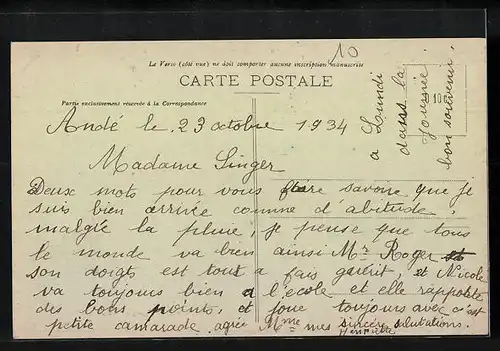 10
Le Verso (côté vue) ne doit comporter aucune inscription manuscrite
CARTE POSTALE
Partie exclusivement réservée à la Correspondance
Andé le 23 octobre 1934
Madame Singer
Deux mots pour vous faire savoire que je
suis bien arrivée comme d'abitude,
malgée la pluie, je pense que tous
le monde va bien ainsi Mr Roger et
son doigts est tout a fais guérit, et Nicole
va toujours bien a l'ecole et elle rapporte
des bons points et joue toujours avec
petite camarade agrée Mme mes sincère salutations.
Henriette
a Lundi
dans la
journée
bon souvenir
10